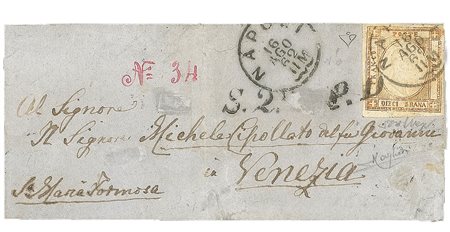 NAPOLI
16 AGO 62 11M
NAPOLI
AGO
DIECI GRANA
Nº 34
S. 2. P. D
Al Signore
Il Signor Michele Cipollato al fu Giovanni
in
Sta Maria Formosa Venezia